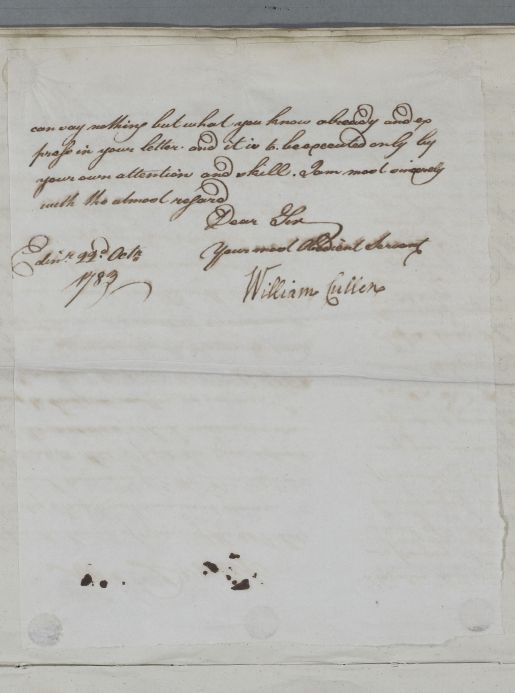 can say nothing but what you know already and ex
press in your letter. and it is to be executed only by
your own attention and skill. I am most sincerely
with the utmost regard
Dear Sir
Your most Obedient Servant
Edinr. 22d. Octr.
1789
William Cullen